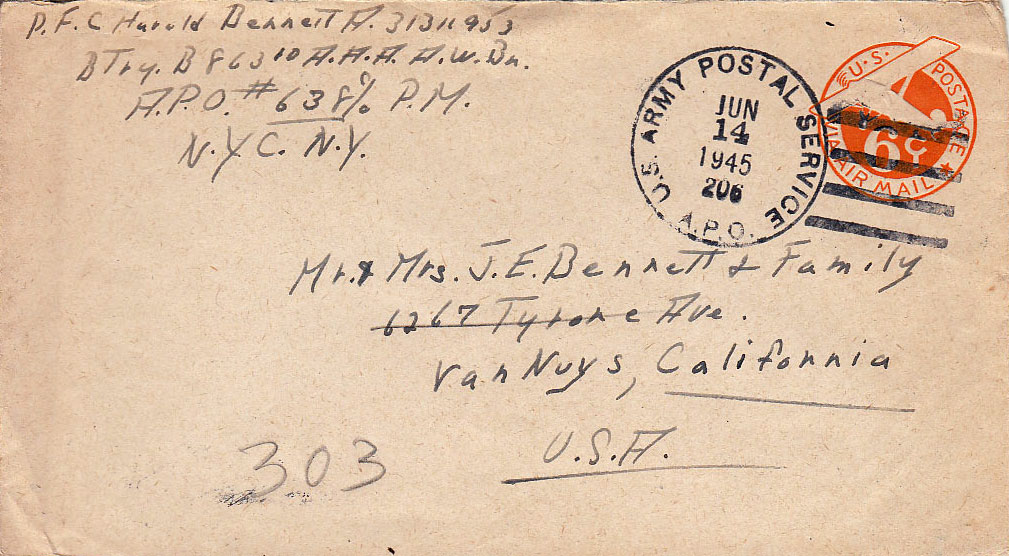 P.F.C Harold Bennett A. 31311953
Btry. B 863rd A.A.A. A.W.Bn.
A.P.O. # 638 % P.M.
N.Y.C. N.Y.
U.S. ARMY POSTAL SERVICE
JUN
14
1945
206
A.P.O.
U.S. POSTAGE
6¢
VIA AIR MAIL
Mr. & Mrs. J.E. Bennett & Family
6267 Tyrone Ave.
Van Nuys, California
U.S.A.
303